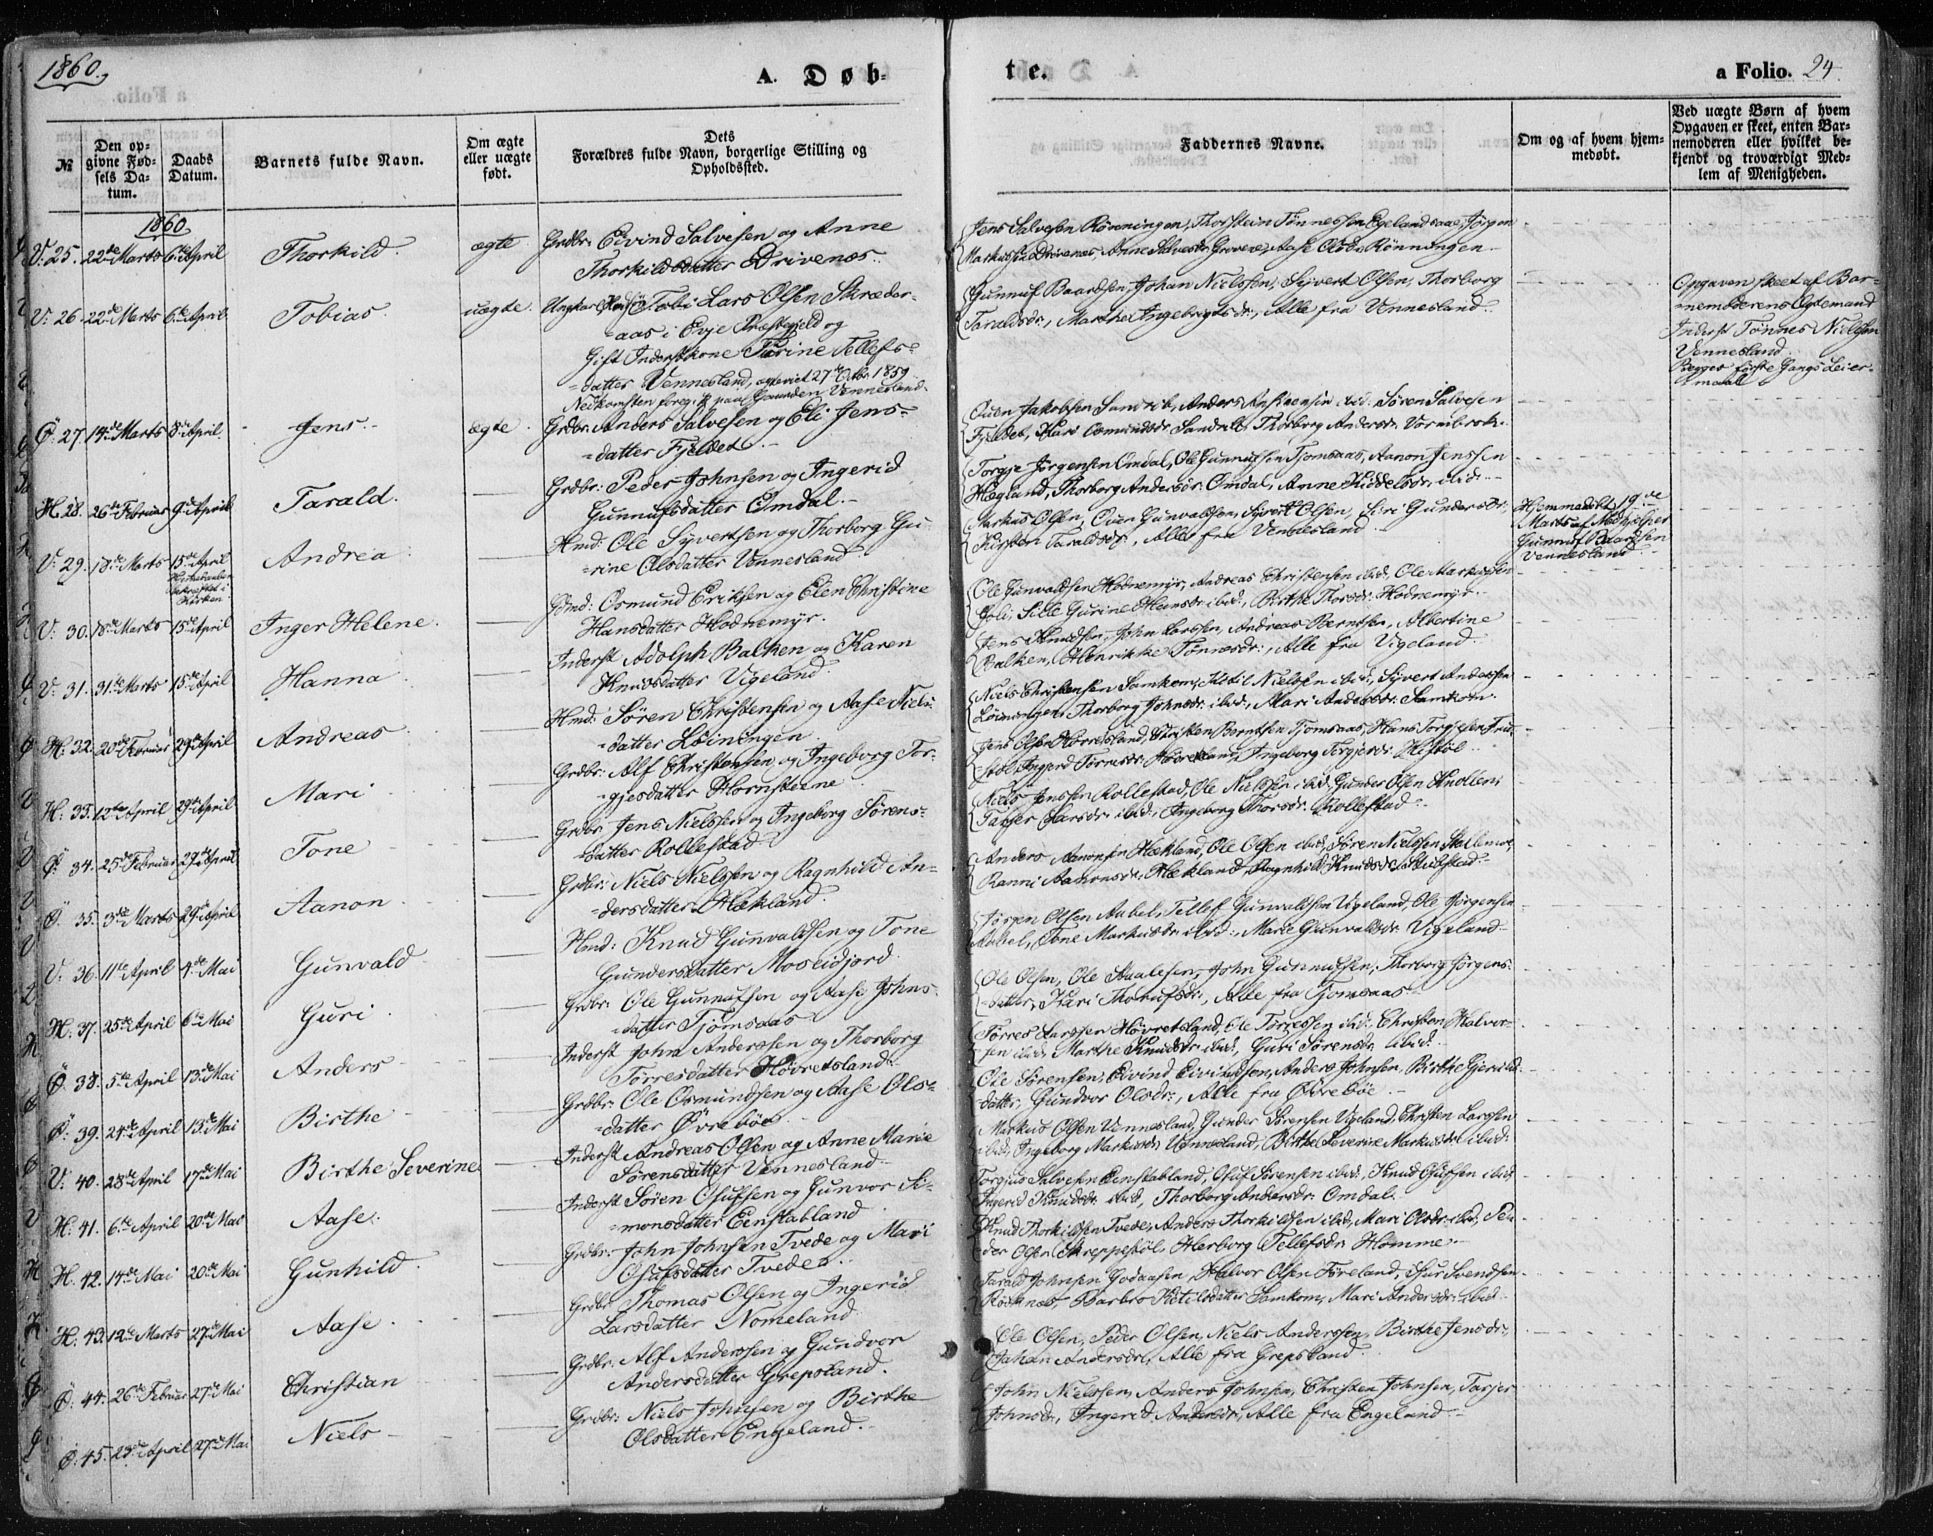 1860.
A. Døb-
te.
a Folio. 24.
№
Den op-
givne Fød-
sels Da-
tum.
Daabs
Datum.
Barnets fulde Navn.
Om ægte
eller uægte
født.
Dets
Forældres fulde Navn, borgerlige Stilling og
Opholdssted.
Faddernes Navne.
Om og af hvem hjem-
medøbt.
Ved uægte Børn af hvem
Opgaven er skeet, enten Bar-
nemoderen eller hvilket be-
kjendt og troværdigt Med-
lem af Menigheden.
1860.
V. 25. 22de Marts 6te April Thorkild. ægte Grdbr: Eivind Salvesen og Anne
Thorkildsdatter Drivenæs.
Jens Salvesen Rønningen, Thorstein Tønnessen Egelandsaae, Jørgen
Markussen Drivenæs, Anne Salvesdr. Grovene, Aase Olsdr. Rønningen
V. 26. 22de Marts 6te April Tobias. uægte. Ungkar Tobi Lars Olsen Skræder-
aas i Evje Præstegjeld og
Gift Inderstkone Tarine Tellefs-
datter Vennesland, 27de Octbr. 1859
Nedkomsten foregik paa Gaarden Vennesland.
Gunnuf Baardsen, Johan Nielssen, Syvert Olsen, Thorborg
Taraldsdr., Marthe Ingebregtsdr., Alle fra Vennesland.
Opgaven skeet af Bar-
nemoderens Ægtemand
Inderst Tønnes Nielsen
Vennesland.
Begges første Gangs Leier-
maal
Ø. 27. 14de Marts 8de April. Jens. ægte. Grdbr: Anders Salvesen og Eli Jens-
datter Fjeldet.
Ouen Jakobsen Sandrib, Anders ibid. Søren Salvesen
Fjeldet, Kari Osmundsdr. Sandrib, Thorborg Andersdr.
H. 28. 26de Februar 9de April Tarald. Grdbr: Peder Johnsen og Ingerid
Gunnufsdatter Omdal.
Torgje Jørgensen Omdal, Ole Gunnufsen Tjomsaas, Aanon Jenssen
Hægland, Thorborg Andersdr. Omdal, Anne Kiddelsdr. ibid.
V. 29. 18de Marts 15de April Andrea. Hmd: Ole Syvertsen og Thorborg Gu-
rine Olsdatter Vennesland.
Hjemmedaaben
bekræftet i
Kirken
Markus Olsen, Ouen Gunvaldsen, Syvert Olsen, Siri Gundersdr.,
Kirsten Taraldsdr., Alle fra Vennesland
Hjemmedøbt 19de
Marts af Medhjelper
Gunnuf Baardsen
Vennesland
V. 30. 18de Marts 15de April Inger Helene. Grmd: Osmund Eriksen og Elen Christine
Hansdatter Hodnemyr.
Ole Gunvaldsen Hodnemyr, Andreas Christensen ibid., Ole Markussen
Sille Gurine Hansdr. ibid., Birthe Thorsdr. Hodnemyr.
V. 31. 31te Marts 15de April Hanna. Inderst Adolph Balken og Karen
Knudsdatter Vigeland.
Jens Knudsen, John Larssen, Andreas Berntsen, Albertine
Balken, Henrikke Tønnesdr., Alle fra Vigeland
H. 32. 20de Februar 29de April Andreas. Hmd: Søren Christensen og Aase Niels-
datter Løiningen.
Niels Christensen Samkom, Kittil Nielsen ibid., Syvert Anderssen
Løiningen, Thorborg Johnsdr. ibid., Mari Andersdr. Samkom.
H. 33. 12te April 29de April Mari. Grdbr: Alf Christensen og Ingeborg Tor-
gjesdatter Hornsteine
Jens Olsen Hovretsland, Christen Berntsen Tjomsaas, Hans Torgjesen
Ingerd Torresdr. Hovretsland, Ingeborg Torgjesdr.
Ø. 34. 25de Februar 29de April Tone. Grdbr. Jens Nielssen og Ingeborg Sørens-
datter Rollestad.
Niels Jenssen Rollestad, Ole Nielssen ibid, Gunder Olsen Knollen,
Tarjer Larsdr. ibid., Ingeborg Thorsdr. Rollestad.
Ø. 35. 3die Marts 29de April Aanon. Grdbr: Niels Nielssen og Ragnhild An-
dersdatter Hækland.
Anders Aanonsen Hækland, Ole Olsen ibid, Søren Nielssen
Ranni Aanonsdr. Hækland, Ragnhild Knudsdr.
V. 36. 11te April 4de Mai Gunvald. Hmd: Knud Gunvaldsen og Tone
Gundersdatter Moseidjord.
Jørgen Olsen Aabel, Tellef Gunvaldsen Vigeland, Ole Jørgensen
Aabel, Tone Markusdr. ibid., Marie Gunvaldsdr. Vigeland
H. 37. 25de April 6te Mai Guri. Grdbr: Ole Gunnufsen og Aase Johns-
datter Tjomsaas
Ole Olsen, Ole Aaalefsen, John Gunnufsen, Thorborg Jørgens-
datter, Kari Thorufsdr., Alle fra Tjomsaas.
Ø. 38. 5te April 13de Mai Anders. Inderst John Anderssen og Thorborg
Torresdatter Hovretsland.
Torres Larssen Hovretsland, Ole Torressen ibid., Christen Halvor-
sen ibid., Marthe Knudsdr. ibid., Guri Sørensdr. ibid.
Ø. 39. 24de April 13de Mai Birthe. Grdbr: Ole Osmundsen og Aase Ols-
datter Øvrebøe
Ole Sørensen, Eivind Eivindsen, Anders Johnsen, Birthe
datter, Gundvor Olsdr., Alle fra Øvrebøe
V. 40. 28de April 17de Mai Birthe Severine Inderst Andreas Olsen og Anne Marie
Sørensdatter Vennesland
Markus Olsen Vennesland, Gunder Sørensen Vigeland, Christen Larssen
ibid., Ingeborg Markusdr. Vennesland, Birthe Severine Markusdr. ibid.
H. 41. 6te April 20de Mai Aase. Inderst Søren Osufsen og Gunvor Si-
monsdatter Eenstabland
Torgius Salvesen Eenstabland, Osuf Sørensen ibid., Knud Osufsen ibid,
Ingerid Knudsdr. ibid, Thorborg Andersdr. Omdal.
H. 42. 14de Mai 20de Mai Gunhild. Grdbr: John Johnsen Tvede og Mari
Osufsdatter Tvede.
Knud Thorkildsen Tvede, Anders Thorkildsen ibid, Mari Olsdr. ibid, Pe-
der Olsen Skreppestøl, Herborg Tellefsdr. Homme.
H. 43. 12te Marts 27de Mai Aase. Grdbr: Thomas Olsen og Ingerid
Larsdatter Nomeland
Tarald Johnsen Godaasen, Halvor Olsen Føreland, Sjur Svendsen
Barbro Ketilsdatter Samkom, Mari Andersdr. ibid.
Ø. 44. 26de Februar 27de Mai Christian Grdbr: Alf Anderssen og Gundvor
Andersdatter Grepsland.
Ole Olsen, Peder Olsen, Niels Anderssen, Birthe Jensdr.,
Johan Andersdr. Alle fra Grepsland.
Ø. 45. 23de April 27de Mai Niels Grdbr: Niels Johnsen og Birthe
Olsdatter Engeland.
John Nielssen, Anders Johnsen, Christen Johnsen, Tarjer
Johnsdr., Ingerid Andersdr., Alle fra Engeland